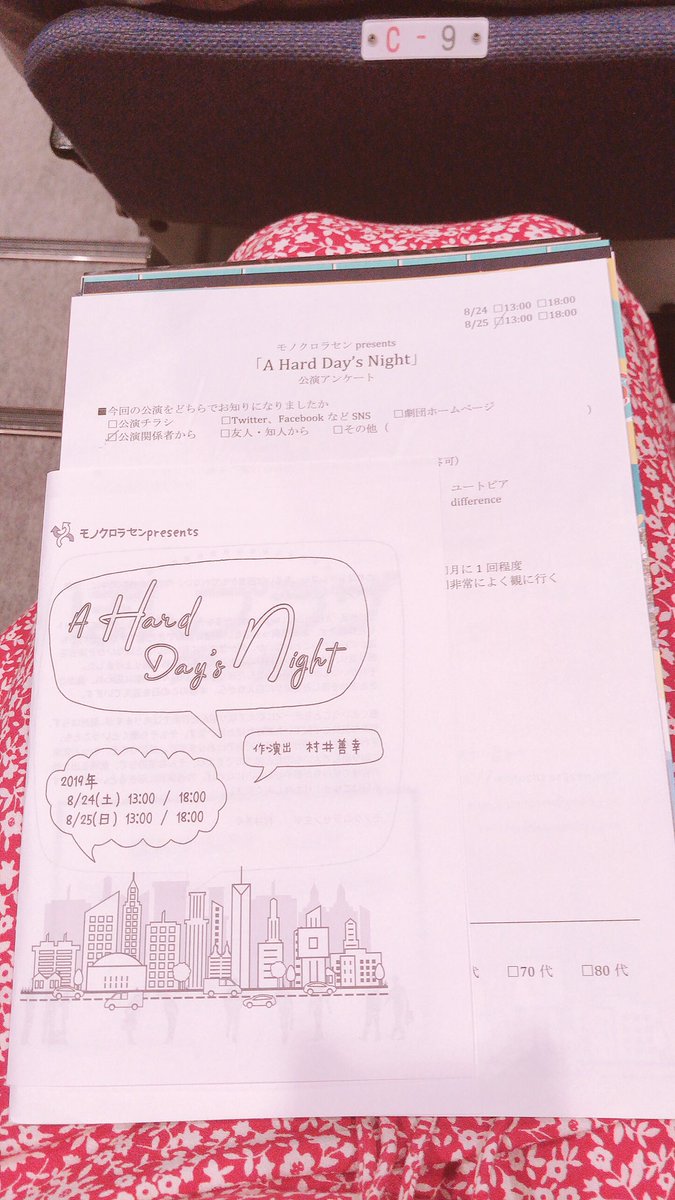 C - 9
8/24 □13:00 □18:00
8/25 ☑13:00 □18:00
モノクロラセン presents
「A Hard Day's Night」
公演アンケート
■今回の公演をどちらでお知りになりましたか
□公演チラシ □Twitter、Facebook など SNS □劇団ホームページ
☑公演関係者から □友人・知人から □その他（ ）
可）
ユートピア
difference
月に 1 回程度
非常によく観に行く
代 □70 代 □80 代
モノクロラセンpresents
A Hard
Day's Night
作・演出 村井善幸
2019年
8/24(土) 13:00 / 18:00
8/25(日) 13:00 / 18:00